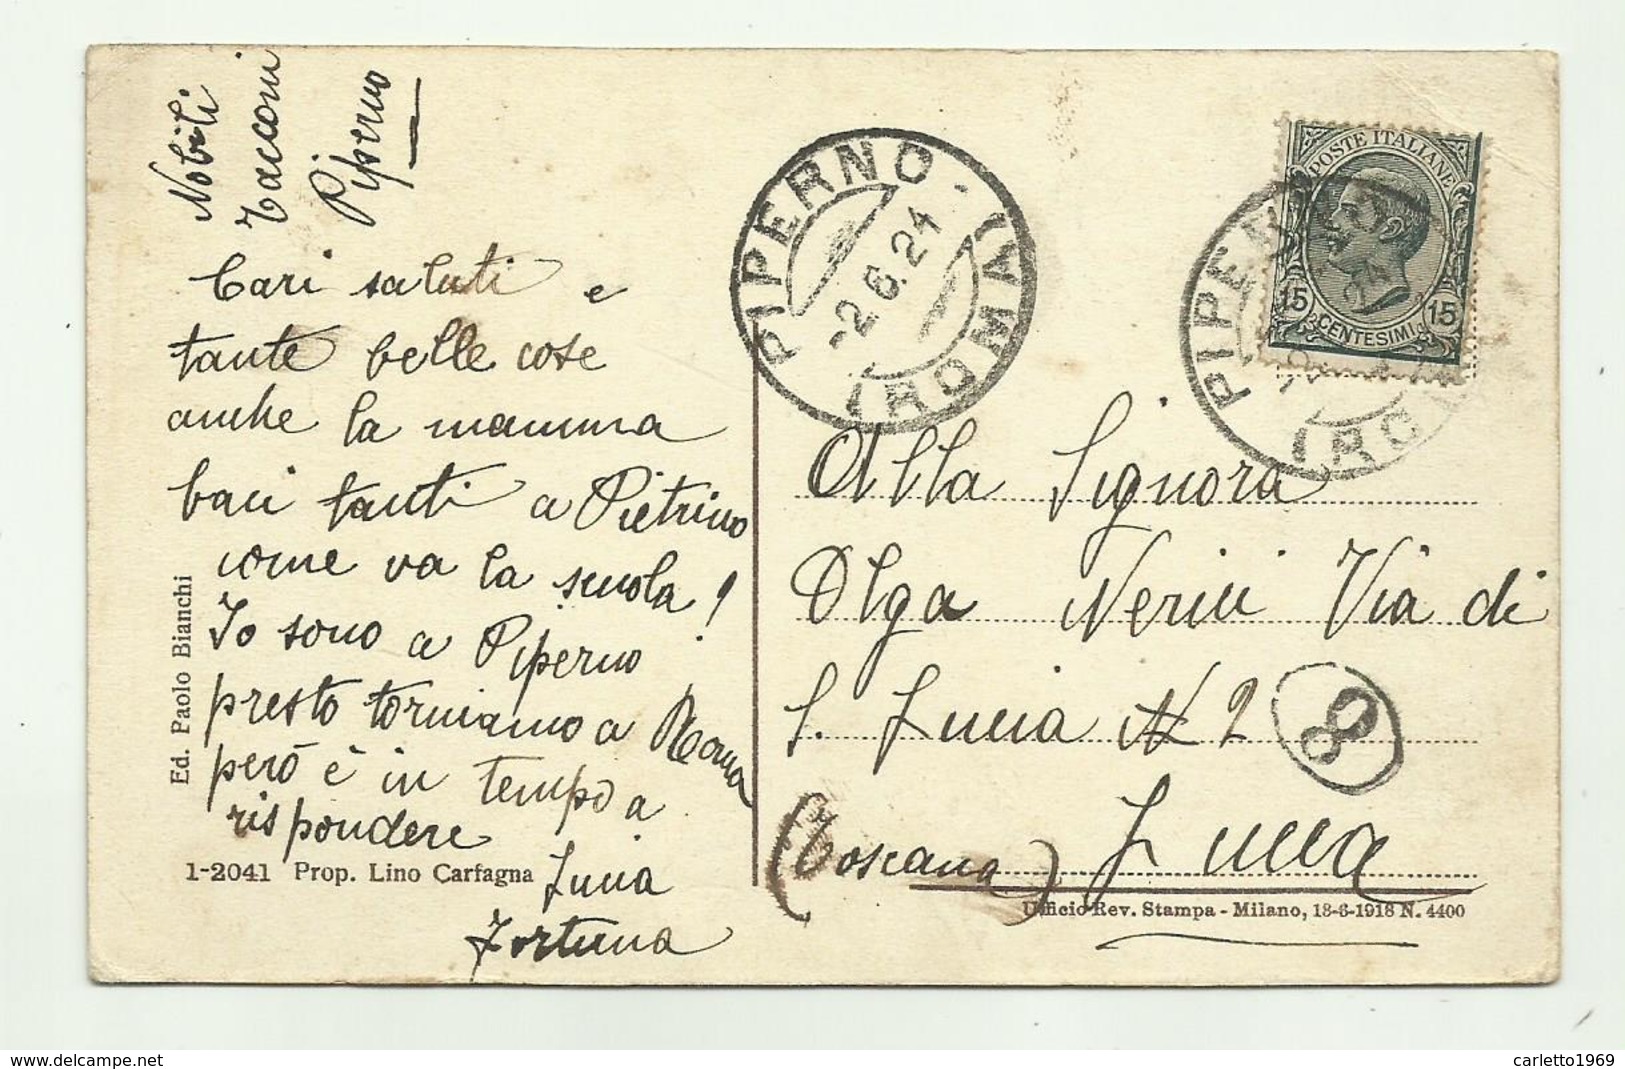 Nobili
Tacconi
Piperno
Cari saluti e
tante belle cose
anche la mamma
baci tanti a Pietrino
come va la scuola!
Io sono a Piperno
presto torniamo a Roma
però è in tempo a
rispondere
Lucia
Fortuna
Ed. Paolo Bianchi
1-2041 Prop. Lino Carfagna
PIPERNO - (ROMA)
-2.6.21
POSTE ITALIANE
15 CENTESIMI 15
PIPERNO (ROMA)
Alla Signora
Olga Nerici Via di
S. Lucia N 2
8
(Toscana) Lucca
Ufficio Rev. Stampa - Milano, 18-6-1918 N. 4400
delcampe.net
carletto1969